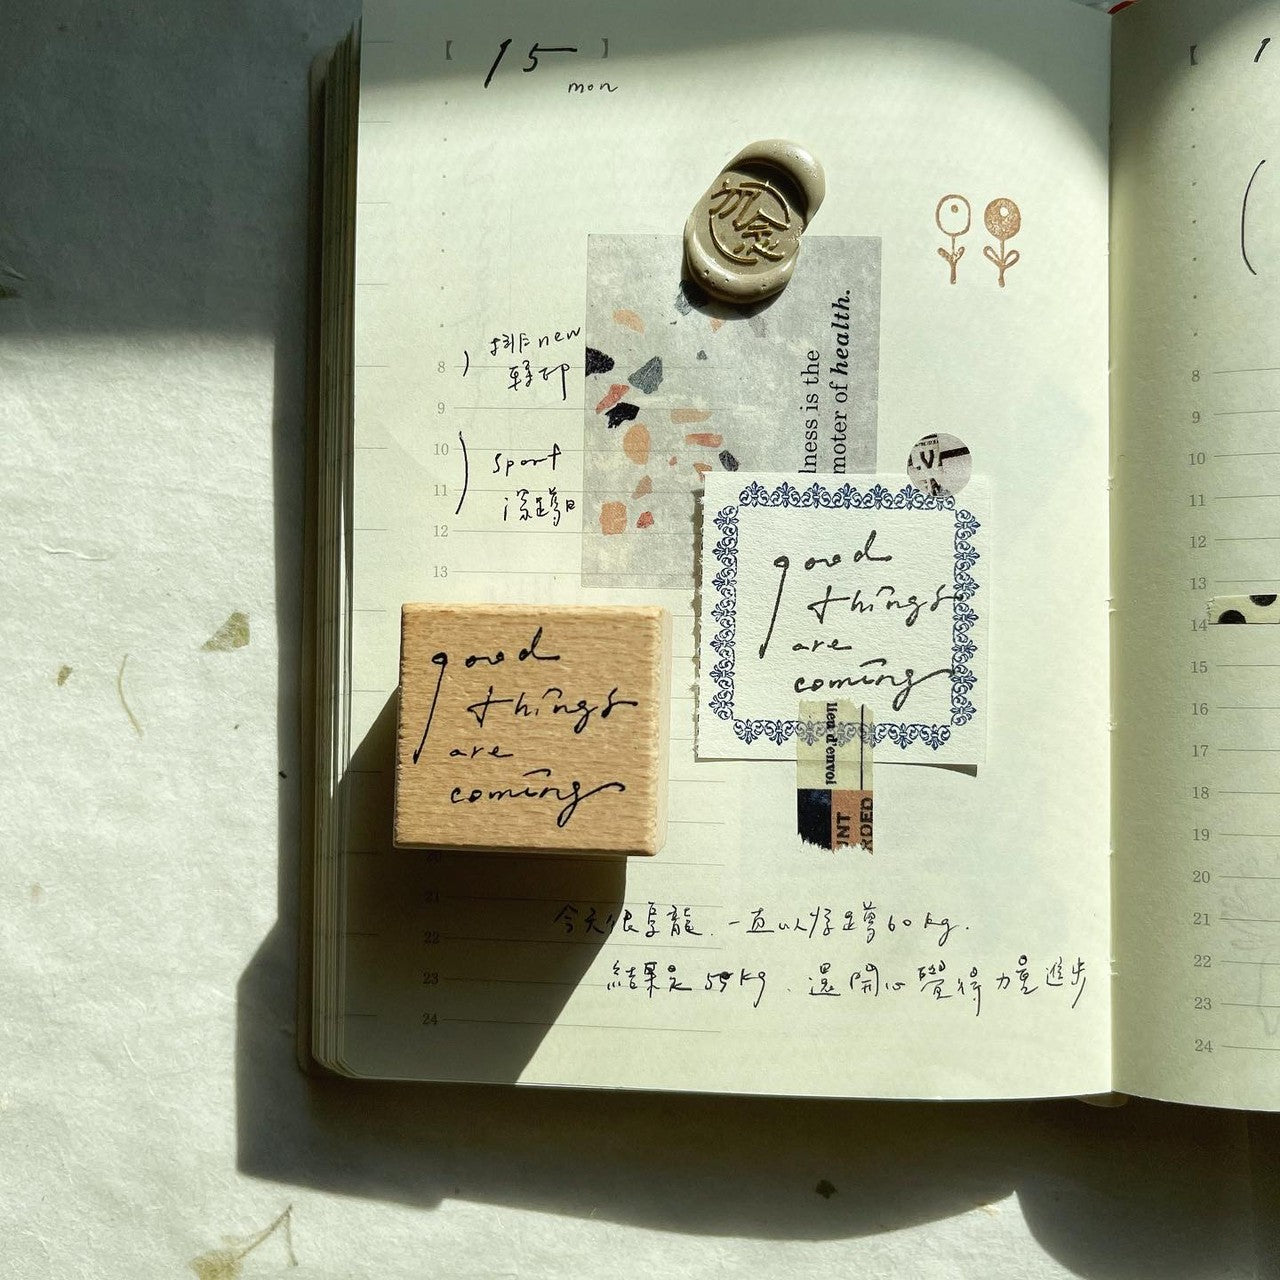 【 15 】
mon
勿念
排new
章印
8
9
sport
深蹲日
10
11
12
13
lness is the
moter of health.
good
things
are
coming
lien d'envoi
UNT
RDED
good
things
are
coming
20
21
22
23
24
今天很蔓龍.一直以為蹲60kg.
結果是55kg.還開心覺得力量進步
【 1
8
9
10
11
12
13
14
15
16
17
18
19
20
21
22
23
24